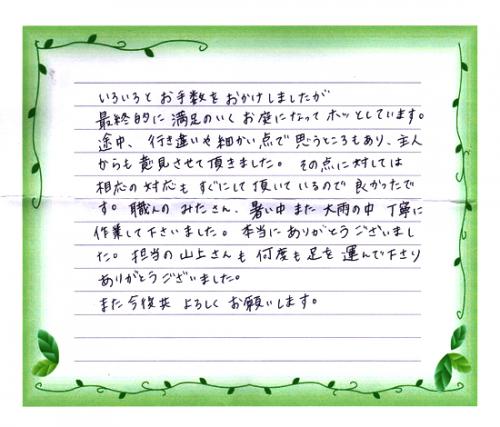 いろいろと お手数を おかけしましたが
最終的に 満足のいく お庭になって ホッとしています。
途中、 行き違いや 細かい点で 思うところもあり、主人
からも 意見させて頂きました。 その点に対しては
相応の 対応も すぐにして 頂いているので 良かったで
す。 職人の みなさん、 暑い中 また 大雨の中 丁寧に
作業して下さいました。 本当に ありがとうございまし
た。 担当の 山上さんも 何度も 足を 運んで下さり
ありがとうございました。
また 今後共 よろしく お願いします。